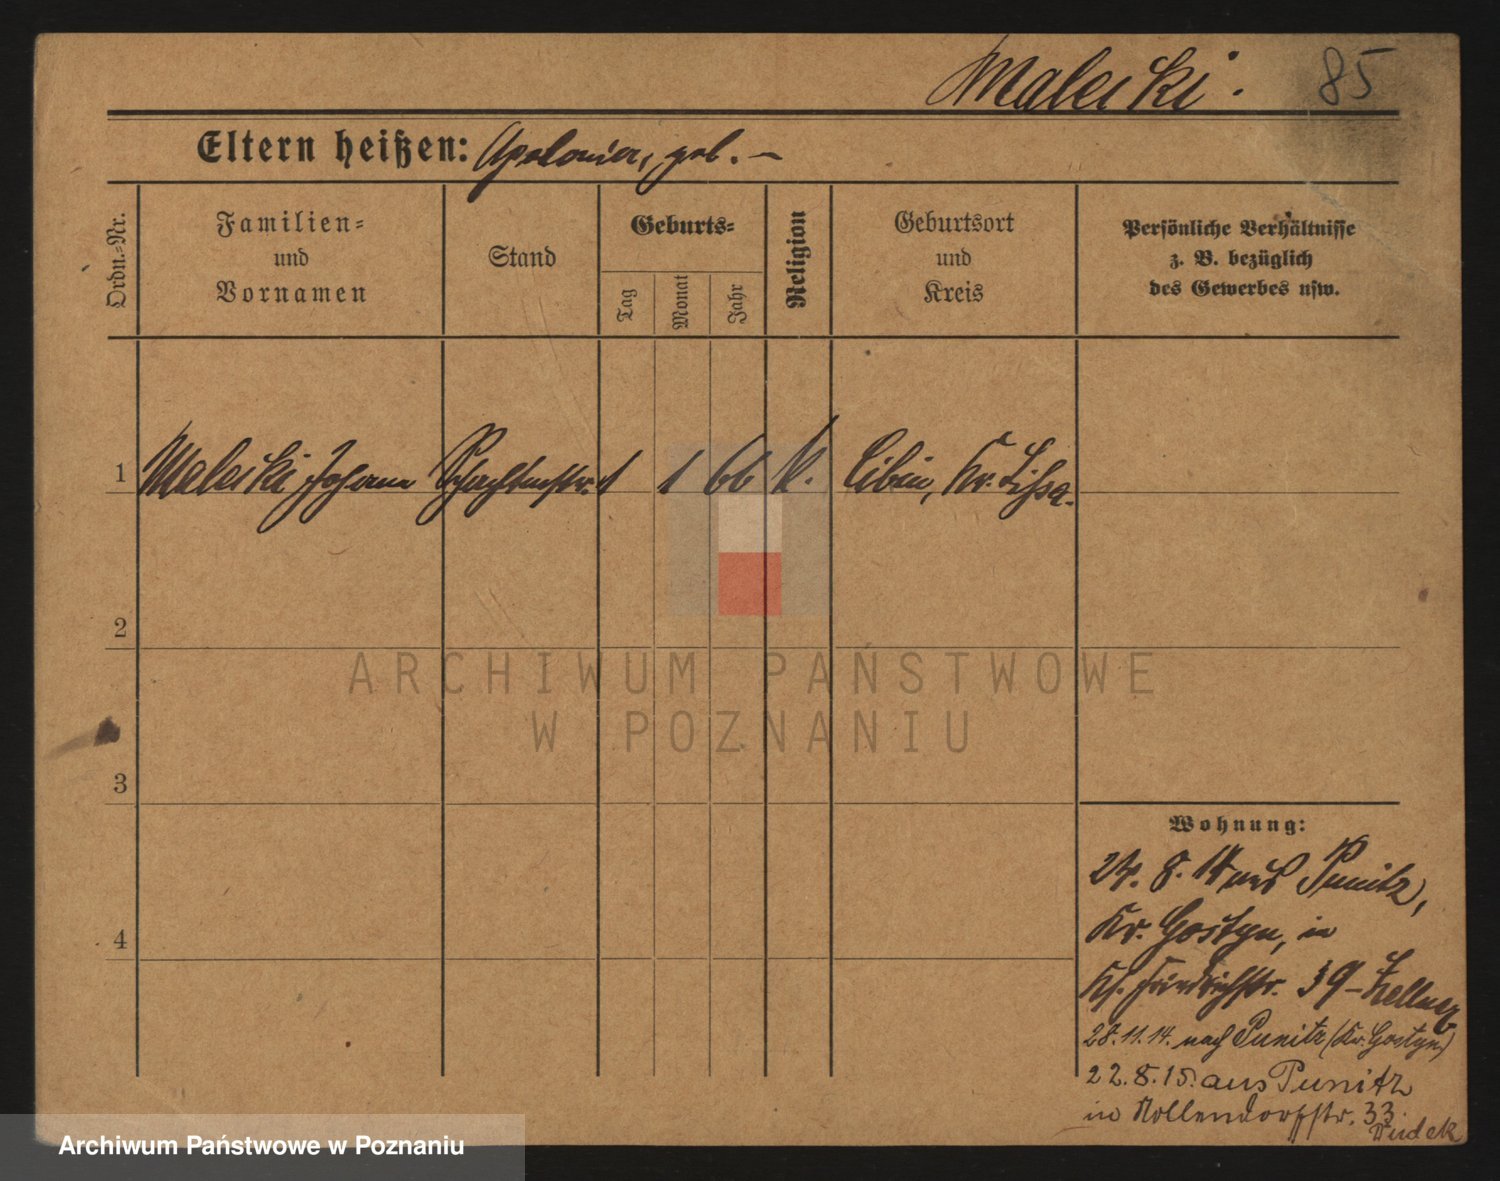 Malecki. 85
Eltern heißen: Apolonia, geb. —
Ordn.-Nr.
Familien-
und
Vornamen
Stand
Geburts-
Tag
Monat
Jahr
Religion
Geburtsort
und
Kreis
Persönliche Verhältnisse
z. B. bezüglich
des Gewerbes usw.
1 Malecki Johann Schachtmstr. 1 1 66 k. Kr. Lissa.
2
3
4
Wohnung:
24. 8. 14 aus Punitz,
Kr. Gostyn, in
Friedrichstr. 39 – Kellner
28. 11. 14. nach Punitz (Kr. Gostyn)
22. 8. 15. aus Punitz
in Nollendorfstr. 33.
Dudek
ARCHIWUM PAŃSTWOWE
W POZNANIU
Archiwum Państwowe w Poznaniu